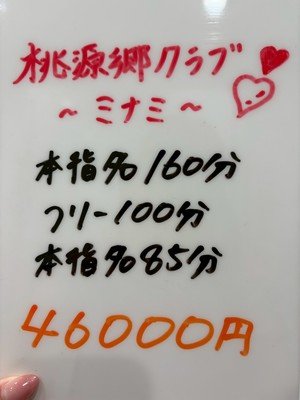 桃源郷クラブ
~ミナミ~
本指名160分
フリー100分
本指名85分
46000円